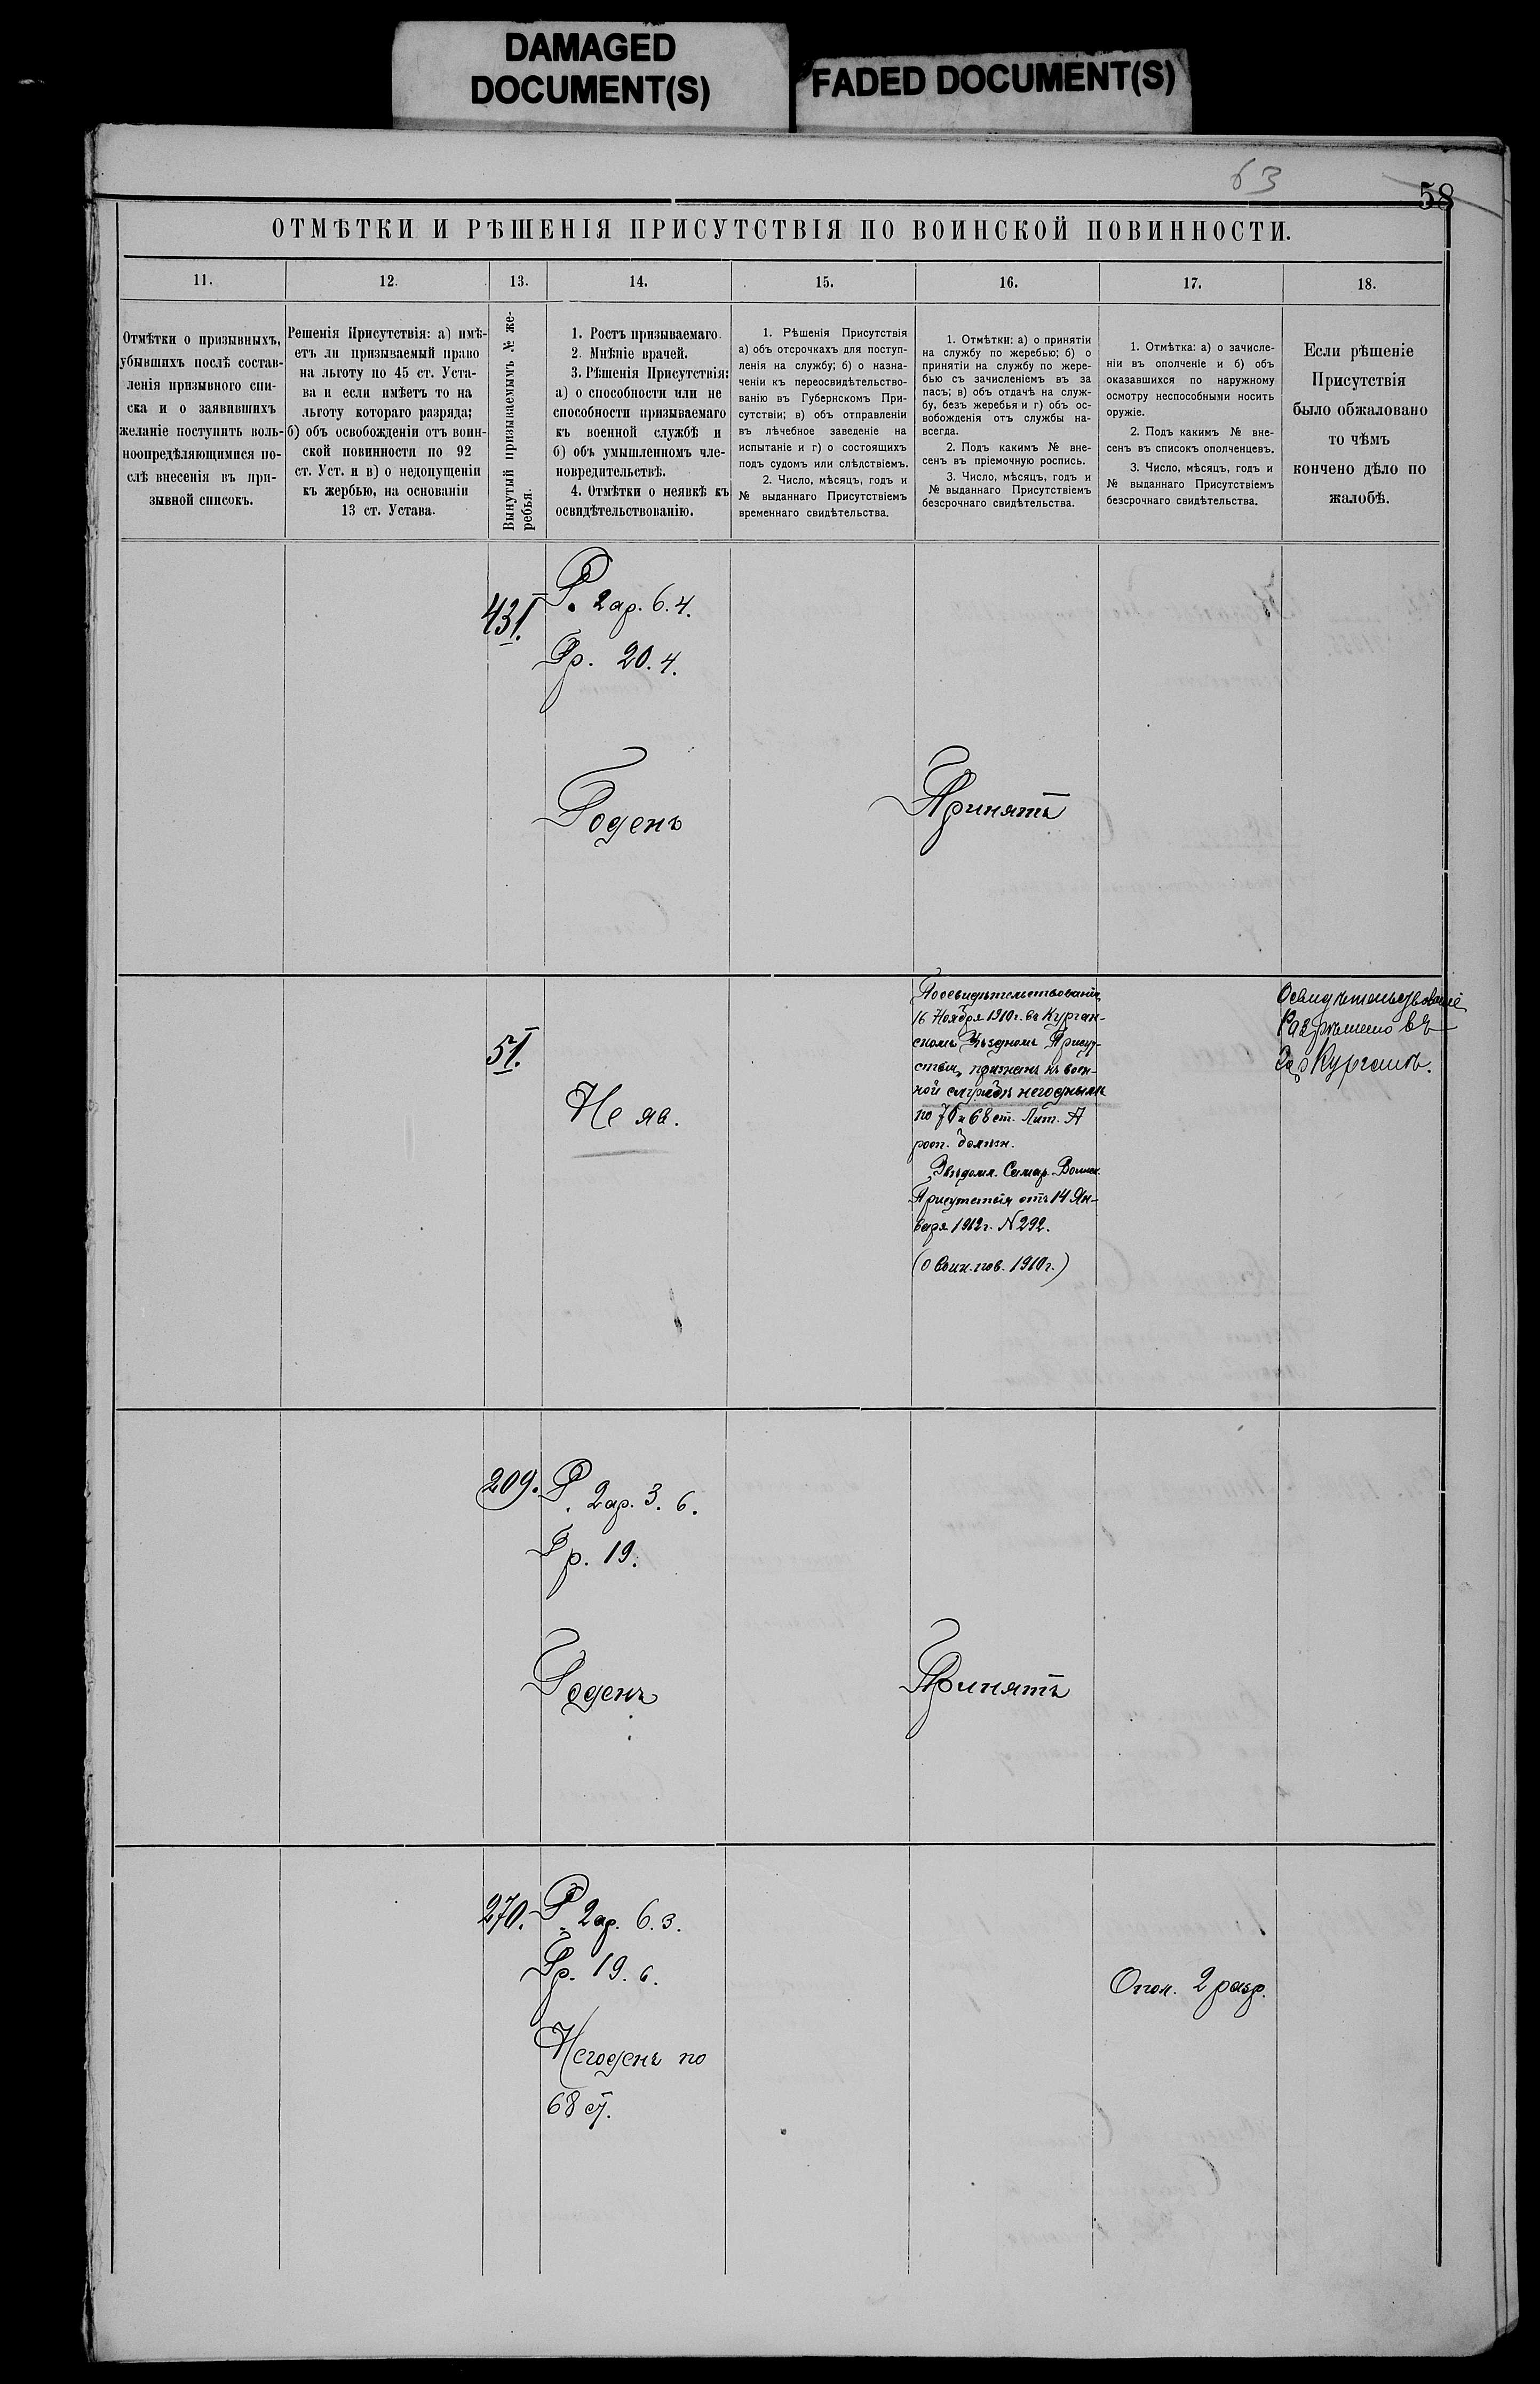 DAMAGED
DOCUMENT(S)
FADED DOCUMENT(S)
63
58
ОТМѢТКИ И РѢШЕНІЯ ПРИСУТСТВІЯ ПО ВОИНСКОЙ ПОВИННОСТИ.
11.
12.
13.
14.
15.
16.
17.
18.
Отмѣтки о призывныхъ,
убывшихъ послѣ состав-
ленія призывного спи-
ска и о заявившихъ
желаніе поступить воль-
ноопредѣляющимися по-
слѣ внесенія въ при-
зывной списокъ.
Решенія Присутствія: а) имѣ-
етъ ли призываемый право
на льготу по 45 ст. Уста-
ва и если имѣетъ то на
льготу котораго разряда;
б) объ освобожденіи отъ воин-
ской повинности по 92
ст. Уст. и в) о недопущеніи
къ жербью, на основаніи
13 ст. Устава.
Вынутый призываемымъ № же-
ребья.
1. Ростъ призываемаго.
2. Мнѣніе врачей.
3. Рѣшенія Присутствія:
а) о способности или не
способности призываемаго
къ военной службѣ и
б) объ умышленномъ чле-
новредительствѣ.
4. Отмѣтки о неявкѣ къ
освидѣтельствованію.
1. Рѣшенія Присутствія
а) объ отсрочкахъ для поступ-
ленія на службу; б) о назна-
ченіи къ переосвидѣтельство-
ванію въ Губернскомъ При-
сутствіи; в) объ отправленіи
въ лѣчебное заведеніе на
испытаніе и г) о состоящихъ
подъ судомъ или слѣдствіемъ.
2. Число, мѣсяцъ, годъ и
№ выданнаго Присутствіемъ
временнаго свидѣтельства.
1. Отмѣтки: а) о принятіи
на службу по жеребью; б) о
принятіи на службу по жере-
бью съ зачисленіемъ въ за
пасъ; в) объ отдачѣ на служ-
бу, безъ жеребья и г) объ ос-
вобожденія отъ службы на-
всегда.
2. Подъ какимъ № вне-
сенъ въ пріемочную роспись.
3. Число, мѣсяцъ, годъ и
№ выданнаго Присутствіемъ
безсрочнаго свидѣтельства.
1. Отмѣтка: а) о зачисле-
ніи въ ополченіе и б) объ
оказавшихся по наружному
осмотру неспособными носить
оружіе.
2. Подъ какимъ № вне-
сенъ въ списокъ ополченцевъ.
3. Число, мѣсяцъ, годъ и
№ выданнаго Присутствіемъ
безсрочнаго свидѣтельства.
Если рѣшеніе
Присутствія
было обжаловано
то чѣмъ
кончено дѣло по
жалобѣ.
431.
Р. 2 ар. 6. 4.
Гр. 20. 4.
Годенъ
Принятъ
51.
Не яв.
По освидѣтельствованіи
16 Ноября 1910 г. въ Курган-
скомъ Уѣздномъ Присут-
ствіи, признанъ къ воен-
ной службѣ негоднымъ
по 70 и 68 ст. Лит. А
росп. болѣзн.
Увѣдомл. Самар. Воинск.
Присутствія отъ 14 Ян-
варя 1912 г. № 292.
(О воин. пов. 1910 г.)
Освидѣтельствованіе
Разрѣшено въ
Курганѣ.
209.
Р. 2 ар. 3. 6.
Гр. 19.
Годенъ
Принятъ
270.
Р. 2 ар. 6. 3.
Гр. 19. 6.
Негоденъ по
68 ст.
Опол. 2 разр.